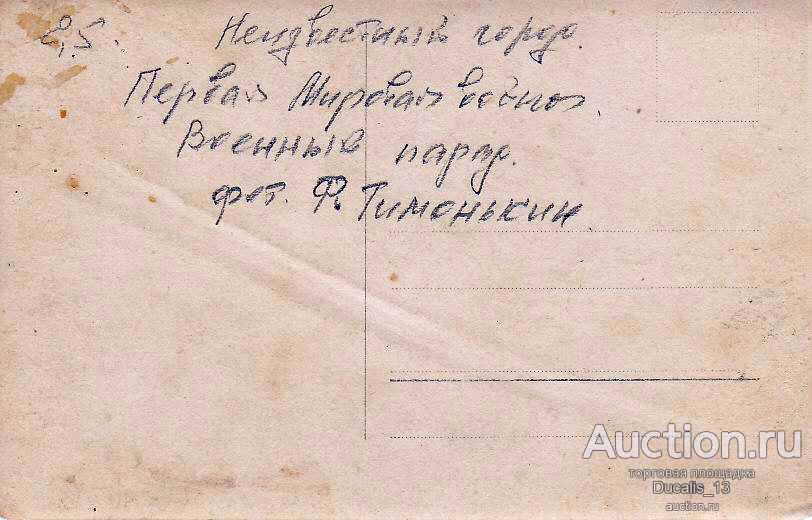 2,5. Неизвестный город.
Первая Мировая война.
Военный парад.
фот. Ф. Тимонькин
Auction.ru
торговая площадка
Ducalis_13
auction.ru